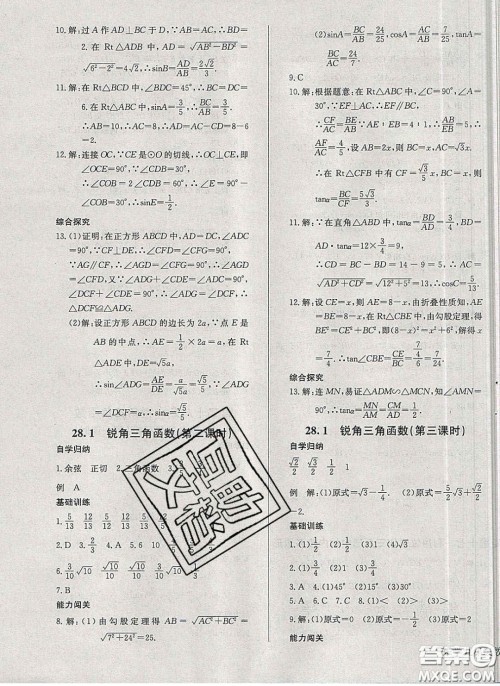 10. 解:过 A 作 AD⊥BC 于 D, ∵BC=4, ∴BD=
2. 在 Rt△ABD 中, AD=√(AB²-BD²)=
√(6²-2²)=4√2, ∴sinB=AD/AB=2√2/3.
11. 解:在 Rt△BCD 中, ∠BDC=45°, ∴BC=DC=
6. 在 Rt△ABC 中, sinA=3/5, ∴BC/AB=3/5,
∴AB=10, ∴AC=8, ∴AD=AC-CD=8-6=
2.
12. 解:连接 OC, ∵CE 是⊙O 的切线, ∴OC⊥CE,
即∠OCE=90°, ∵∠CDB=30°,
∴∠COB=2∠CDB=60°, ∴∠E=90°
-∠COB=30°, ∴sinE=1/2.
综合探究
13. (1)证明:在正方形 ABCD 中, AD=DC, ∠ADC
=90°, ∵CF⊥DE, ∴∠CFD=∠CFG=90°,
∵AG∥CF, ∴∠AGD=∠CFG=90°,
∴∠AGD=∠CFD, 又∵∠ADG+∠CDE=
∠ADC=90°,
∠DCF+∠CDE=90°, ∴∠ADG=∠DCF,
∴△DCF≌△ADG
(2)解:设正方形 ABCD 的边长为 2a, ∵点 E 是
AB 的中点, ∴AE=1/2×2a=a, 在 Rt
△ADE 中, DE=√5a,
∴sin∠ADG=AE/DE=a/(a√5)=√5/5,
∠DCF
28.1 锐角三角函数(第二课时)
自学归纳
1. 余弦 正切 2. 三角函数 3.
例 A
基础训练
1. 5/13 12/13 5/12 12/13 5/13
2. D 3. A 4. A 5. 6
6. 3/10√10 √10/10
7. B
能力闯关
8. 解:(1)由勾股定理得 AB=√(AC²+BC²)=
√(7²+24²)=25.
(2)sinA=BC/AB=24/25, cosA=AC/AB=7/25, tanA=
BC/AC=24/7.
9. C
10. 解:根据题意:在 Rt△ABC 中, ∠C=90°, ∠A
=30°, ∵EF⊥AC, ∴EF∥BC,
∴CF/AC=BE/AB, ∵AE:EB=4:1, ∴AB/EB=5,
∴AF/AC=4/5, 设 AB=2x, 则 BC=x, AC=√3x.
∴在 Rt△CFB 中有 CF=√3/5x, BC=x. 则
tan∠CFB=BC/CF=5√3/3.
11. 解:∵在直角△ABD 中, tanα=BD/AD=3/4,
∴BD=AD·tanα=12×3/4=9,
∴CD=BC-BD=14-9=5,
∴AC=√(AD²+CD²)=√(12²+5²)=13,
∴sinC=AD/AC=12/13.
12. 解:设 CE=x, 则 AE=8-x, 由折叠性质知,
AE=BE=8-x, 在 Rt△CBE 中, 由勾股定理得
BE²=CE²+BC², 即(8-x)²=x²+6², 解得
x=7/4, ∴tan∠CBE=CE/BE=(7/4)/6=7/24.
综合探究
13. 解:连 MN, 易证△ADM∽△MCN, 知∠AMN=
90°, ∴tanα=MN/AM=CM/AD=1/2.
28.1 锐角三角函数(第三课时)
自学归纳
例 解:(1)原式=√3-1/2. (2)原式=
-2.
基础训练
1. (1)1/2 (2)1/2 (3)1 (4)√3
2. A 3. A 4. (1)45° (2)15° 5. 60°
6. 解:(1)原式=0 (2)原式=-1/2
7. A
能力闯关